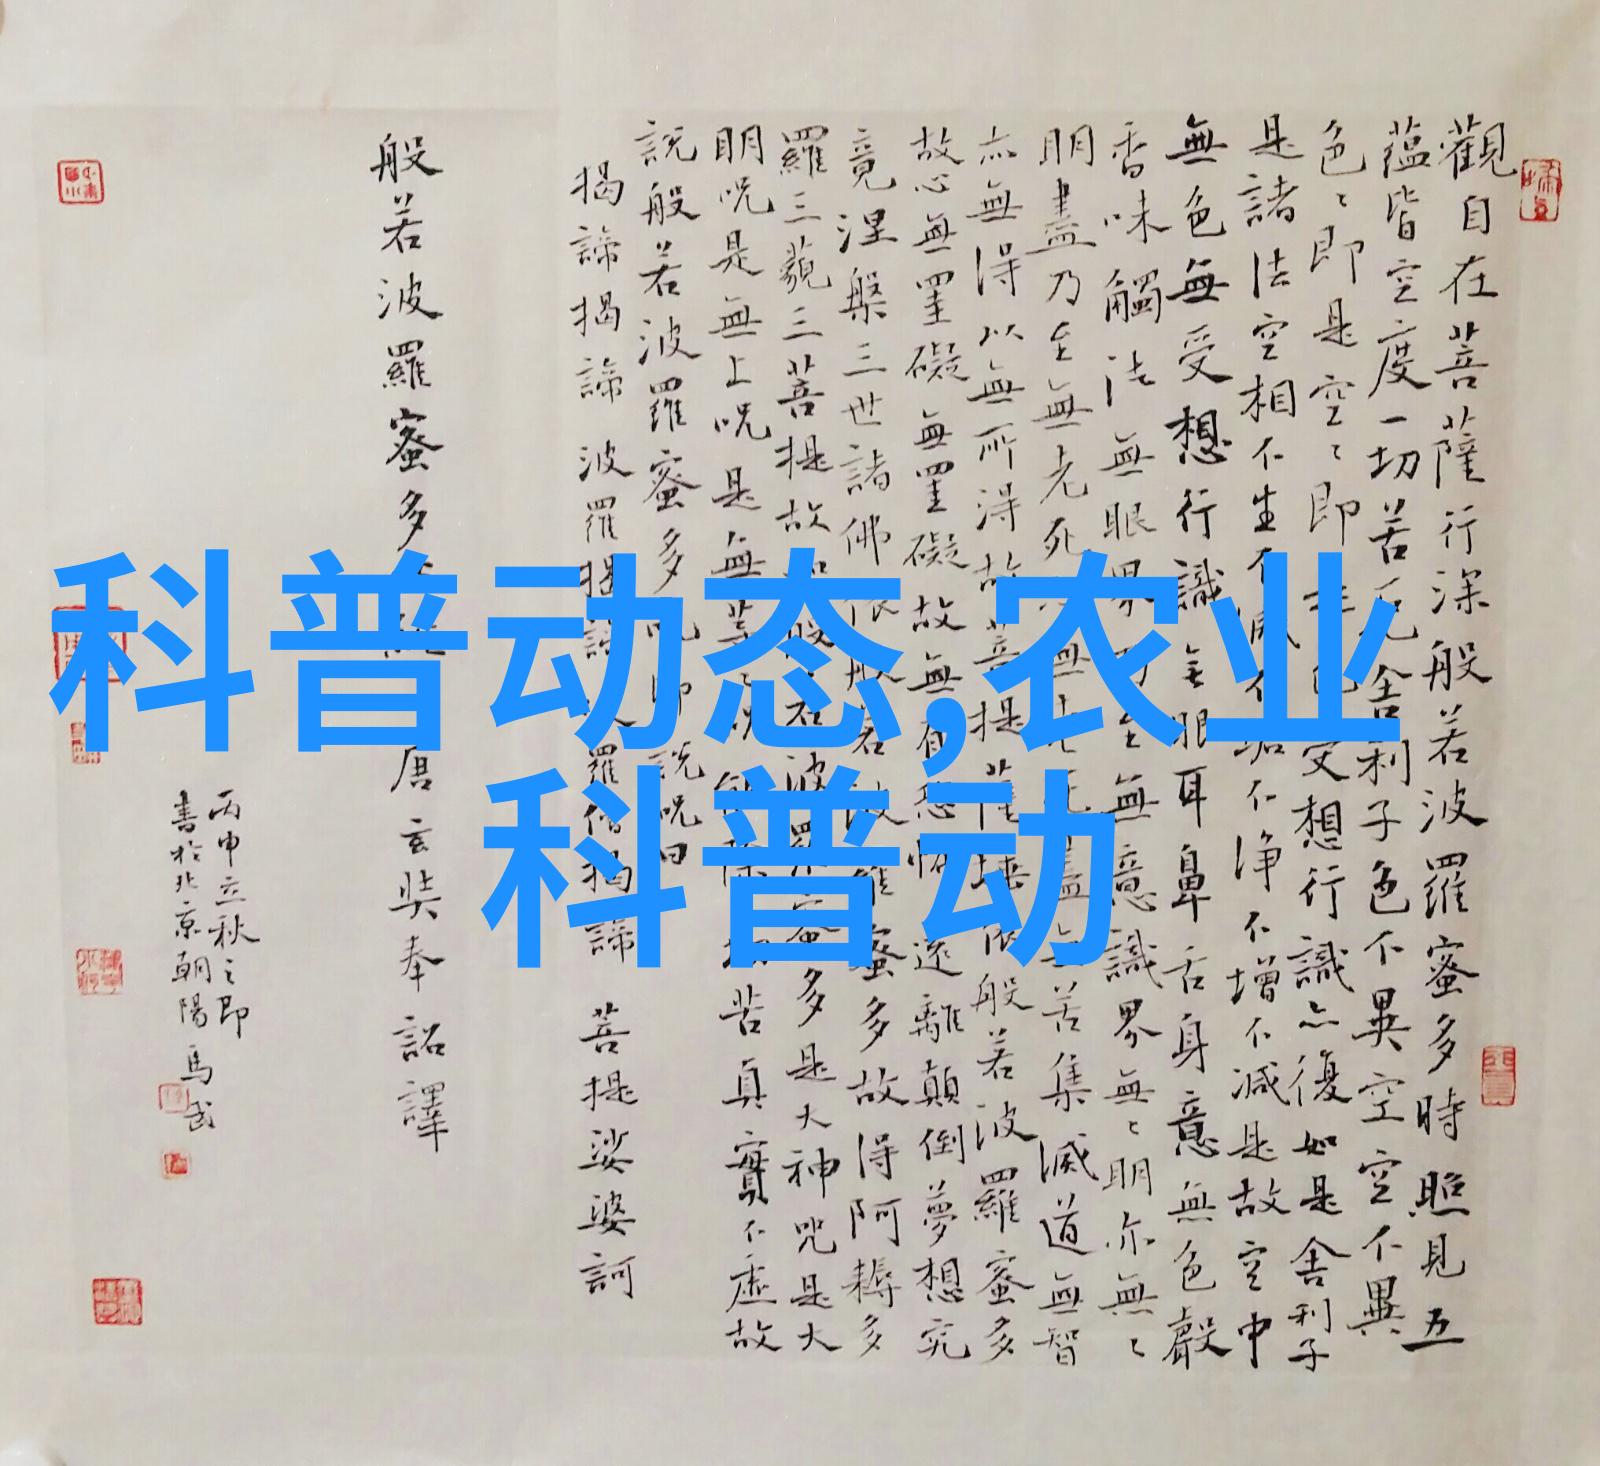 科普动态,农业
科普动
觀自在菩薩行深般若波羅蜜多時照見五
蘊皆空度一切苦厄舍利子色不異空空不異
色〻即是空〻即是色受想行識亦復如是舍利子
是諸法空相不生不滅不垢不淨不增不減是故空中
無色無受想行識無眼耳鼻舌身意無色聲
香味觸法無眼界乃至無意識界無〻明亦無〻
明盡乃至無老死亦無老死盡無苦集滅道無智
亦無得以無所得故菩提薩埵依般若波羅蜜多
故心無罣礙無罣礙故無有恐怖遠離顛倒夢想究
竟涅槃三世諸佛依般若波羅蜜多故得阿耨多
羅三藐三菩提故知般若波羅蜜多是大神咒是大
明呪是無上呪是無等〻呪能除一切苦真實不虛故
說般若波羅蜜多呪即說呪曰
揭諦揭諦 波羅揭諦 波羅僧揭諦 菩提娑婆訶
般若波羅蜜多心經 唐玄奘奉詔譯
丙申立秋之即
書於北京朝陽 馬武